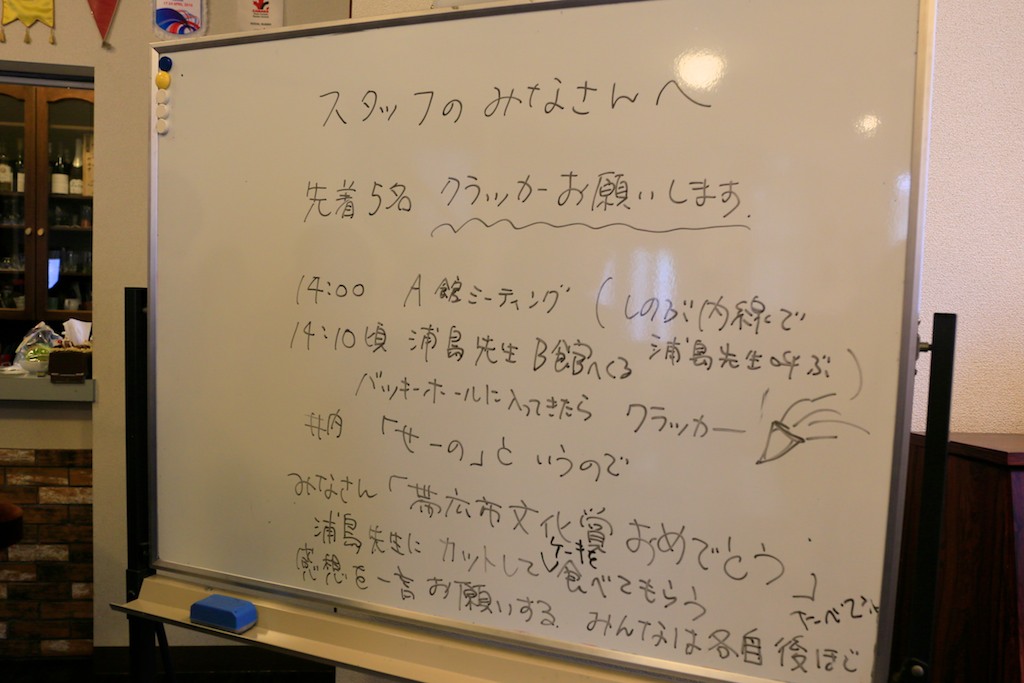 スタッフの みなさんへ
先着5名 クラッカーお願いします.
14:00 A館ミーティング (しのぶ内線で
浦島先生呼ぶ)
14:10頃 浦島先生B館へくる
バッキーホールに入ってきたら クラッカー
井内 「せーの」と いうので
みなさん「帯広市文化賞 おめでとう」
浦島先生に カットして ケーキを 食べてもらう
感想を一言お願いする. みんなは各自後ほど
たべてね